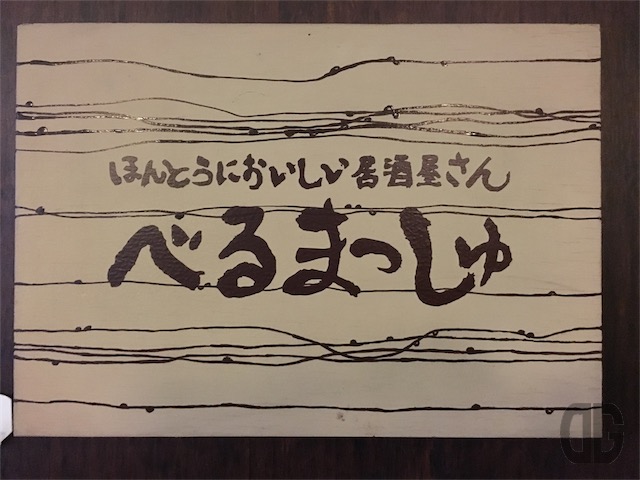 ほんとうにおいしい居酒屋さん
べるまっしゅ
DG